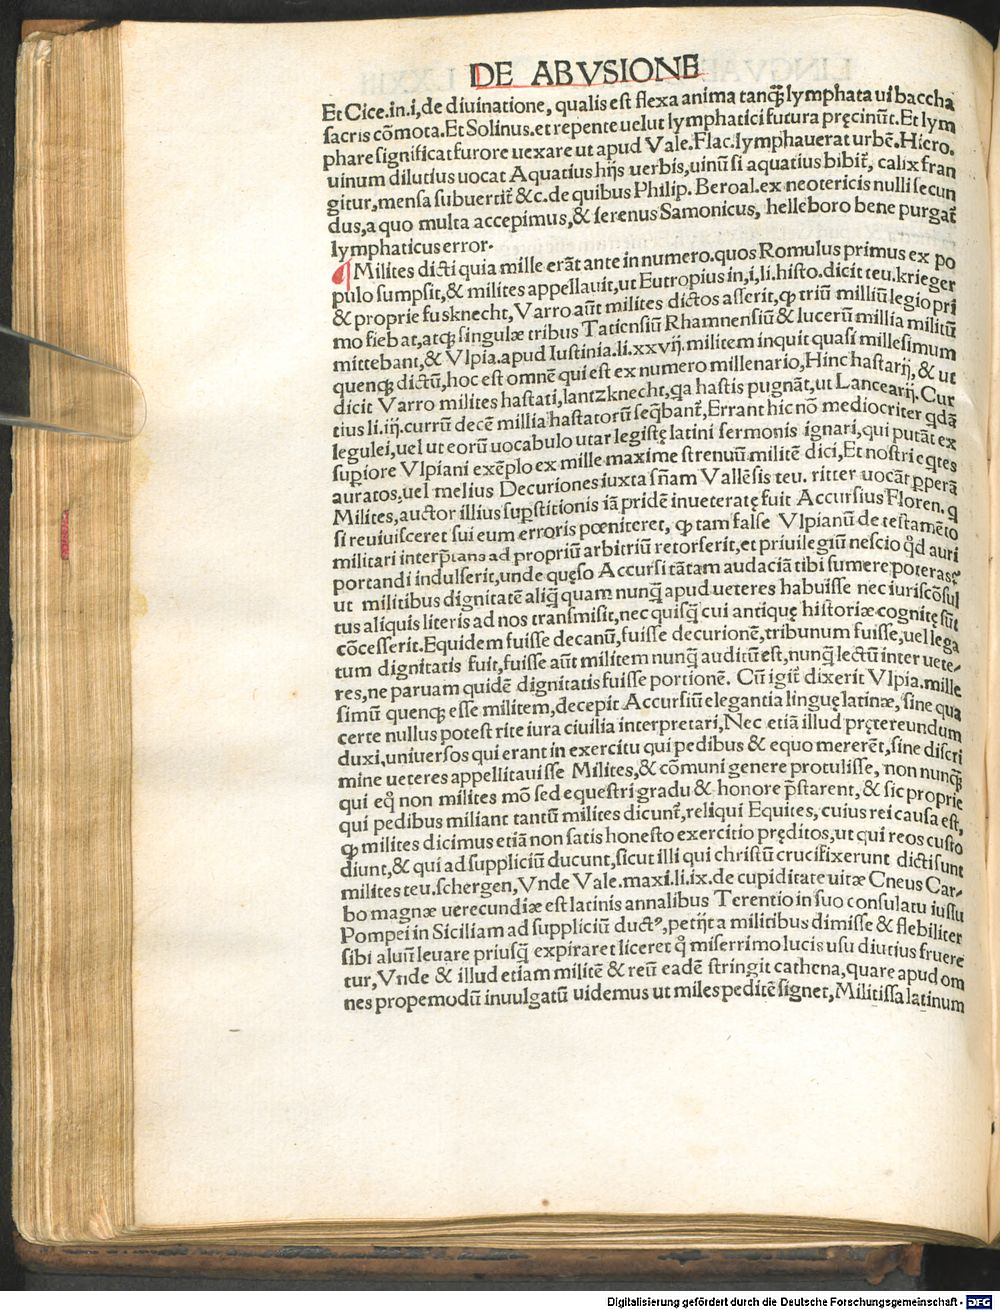 DE ABVSIONE
Et Cice.in.i,de diuinatione, qualis est flexa anima tanq̃ lymphata ui baccha
sacris cõmota.Et Solinus.et repente uelut lymphatici futura pręcinũt.Et lym
phare significat furore uexare ut apud Vale.Flac.lymphauerat urbẽ.Hiero.
uinum dilutius uocat Aquatius hijs uerbis,uinũ si aquatius bibit̃, calix fran
gitur,mensa subuertit̃ &c.de quibus Philip. Beroal.ex neotericis nulli secun
dus,a quo multa accepimus,& serenus Samonicus, helleboro bene purgat̃
lymphaticus error.
¶ Milites dicti quia mille erãt ante in numero.quos Romulus primus ex po
pulo sumpsit,& milites appellauit,ut Eutropius in,i,li.histo.dicit teu.krieger
& proprie fusknecht,Varro aũt milites dictos asserit,ꝙ triũ milliũ legio pri
mo fiebat,atqꝫ singulæ tribus Tatiensiũ Rhamnensiũ & lucerũ millia militũ
mittebant,& Vlpia.apud Iustinia.li.xxvij.militem inquit quasi millesimum
quenqꝫ dictũ,hoc est omnẽ qui est ex numero millenario,Hinc hastarij,& ut
dicit Varro milites hastati,lantzknecht,qa hastis pugnãt,ut Lancearij. Cur
tius li.iij.currũ decẽ millia hastatorũ seq̃bant̃,Errant hic nõ mediocriter qdã
legulei,uel ut eorũ uocabulo utar legistę latini sermonis ignari,qui putãt ex
supiore Vlpiani exẽplo ex mille maxime strenuũ militẽ dici,Et nostri eqtes
auratos,uel melius Decuriones iuxta sñam Vallẽsis teu. ritter uocãt ꝑperã
Milites,auctor illius supstitionis iã pridẽ inueteratę fuit Accursius Floren.q
si reuiuisceret sui eum erroris pœniteret, ꝙ tam false Vlpianũ de testamẽto
militari interp̃tans ad propriũ arbitriũ retorserit,et priuilegiũ nescio qd̃ auri
portandi indulserit,unde quęso Accursi tãtam audaciã tibi sumere poteras,
ut militibus dignitatẽ aliq̃ quam nunq̃ apud ueteres habuisse nec iuriscõsul
tus aliquis literis ad nos transmisit,nec quisq̃ cui antiquę historiæ cognitę sũt
cõcesserit.Equidem fuisse decanũ,fuisse decurionẽ,tribunum fuisse,uel lega
tum dignitatis fuit,fuisse aũt militem nunq̃ auditũ est,nunq̃ lectũ inter uete-
res,ne paruam quidẽ dignitatis fuisse portionẽ. Cũ igit̃ dixerit Vlpia.mille
simũ quenqꝫ esse militem,decepit Accursiũ elegantia linguę latinæ, sine qua
certe nullus potest rite iura ciuilia interpretari,Nec etiã illud prętereundum
duxi,uniuersos qui erant in exercitu qui pedibus & equo mererẽt,sine discri
mine ueteres appellitauisse Milites,& cõmuni genere protulisse, non nunq̃
qui eq̃ non milites mõ sed equestri gradu & honore p̃starent, & sic proprie
qui pedibus miliant tantũ milites dicunt̃,reliqui Equites, cuius rei causa est,
ꝙ milites dicimus etiã non satis honesto exercitio pręditos,ut qui reos custo
diunt,& qui ad suppliciũ ducunt,sicut illi qui christũ crucifixerunt dicti sunt
milites teu.schergen,Vnde Vale.maxi.li.ix.de cupiditate uitæ Cneus Car-
bo magnæ uerecundiæ est latinis annalibus Terentio in suo consulatu iussu
Pompei in Siciliam ad suppliciũ ductꝰ,petijt a militibus dimisse & flebiliter
sibi aluũ leuare priusq̃ expiraret liceret q̃ miserrimo lucis usu diutius fruere
tur,Vnde & illud etiam militẽ & reũ eadẽ stringit cathena,quare apud om
nes propemodũ inuulgatũ uidemus ut miles peditẽ signet,Militissa latinum
Digitalisierung gefördert durch die Deutsche Forschungsgemeinschaft - DFG